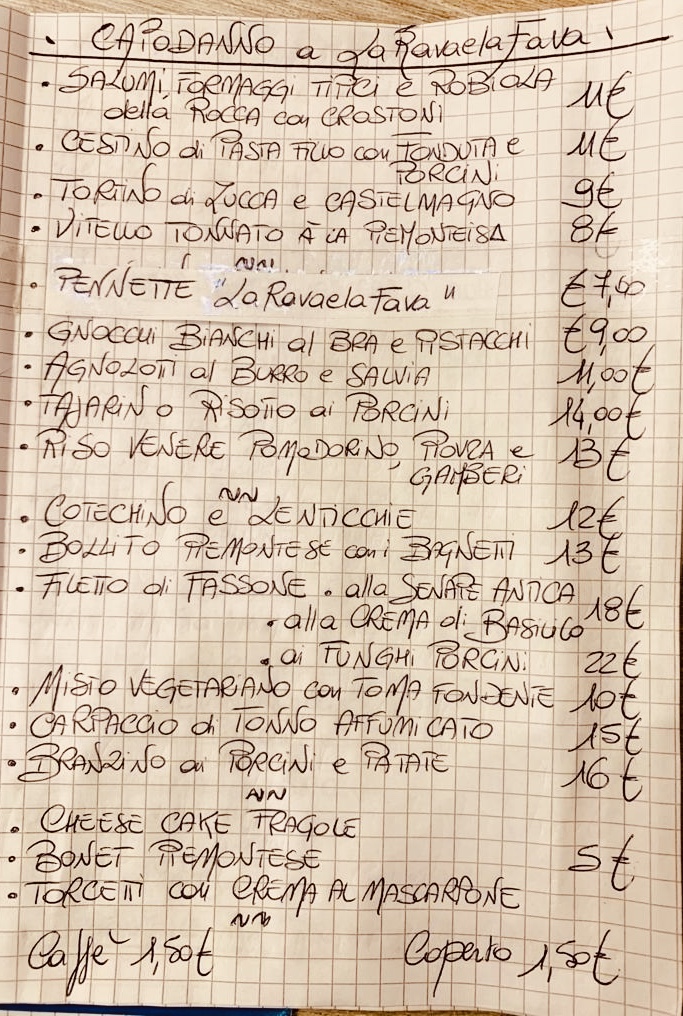 · CAPODANNO a LaRavaelaFava ·
• SALUMI, FORMAGGI TIPICI e ROBIOLA
della ROCCA con CROSTONI 11€
• CESTINO di PASTA FILLO con FONDUTA e 11€
PORCINI
• TORTINO di ZUCCA e CASTELMAGNO 9€
• VITELLO TONNATO À LA PIEMONTEISA 8€
• PENNETTE "LaRavaelaFava" €7,00
• GNOCCHI BIANCHI al BRA e PISTACCHI €9,00
• AGNOLOTTI al BURRO e SALVIA 11,00€
• TAJARIN O RISOTTO ai PORCINI 14,00€
• RISO VENERE POMODORINO, PIOVRA e 13€
GAMBERI
• COTECHINO e LENTICCHIE 12€
• BOLLITO PIEMONTESE con i BAGNETTI 13€
• FILETTO di FASSONE • alla SENAPE ANTICA
• alla CREMA di BASILICO 18€
• ai FUNGHI PORCINI 22€
• MISTO VEGETARIANO con TOMA FONDENTE 10€
• CARPACCIO di TONNO AFFUMICATO 15€
• BRANZINO ai PORCINI e PATATE 16€
• CHEESE CAKE FRAGOLE
• BONET PIEMONTESE 5€
• TORCETTI con CREMA AL MASCARPONE
Caffè 1,50€ Coperto 1,50€